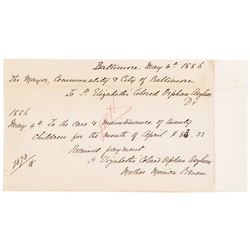 Baltimore May 4th 1886
The Mayor, Commonality & City of Baltimore
To St. Elizabeth's Colored Orphan Asylum
Dr
1886
May 4th To the care & maintenance of twenty
Children for the month of April $83 33
Received payment
St Elizabeth's Colored Orphan Asylum
Mother Monica